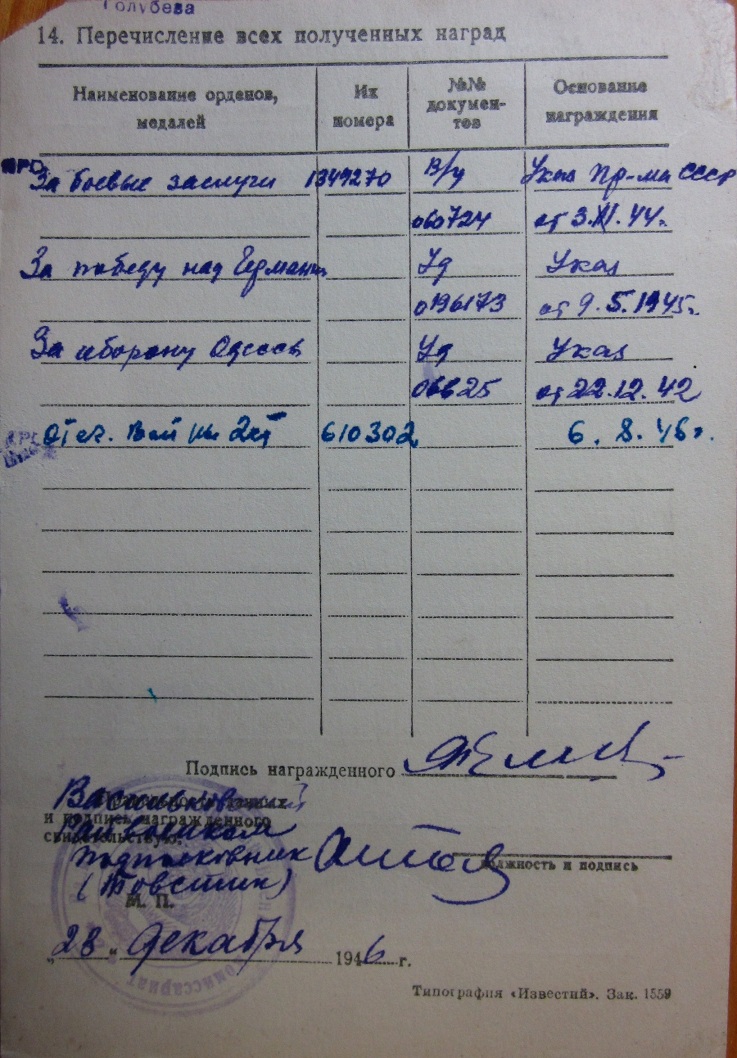 Голубева
14. Перечисление всех полученных наград
Наименование орденов, медалей
Их номера
№№ документов
Основание награждения
За боевые заслуги 1349270 В/у Указ Пр-ма СССР
060724 от 3.XI.44г.
За победу над Германи Уд Указ
0196173 от 9.5.1945г.
За оборону Одессы Уд Указ
06625 от 22.12.42
Отеч. Войны 2 ст 610302 6.8.46г.
Подпись награжденного
и подпись награжденного
свидетельствую:
подполковник
(Товстик)
должность и подпись
М. П.
„28" декабря 1946 г.
Типография «Известий». Зак. 1559